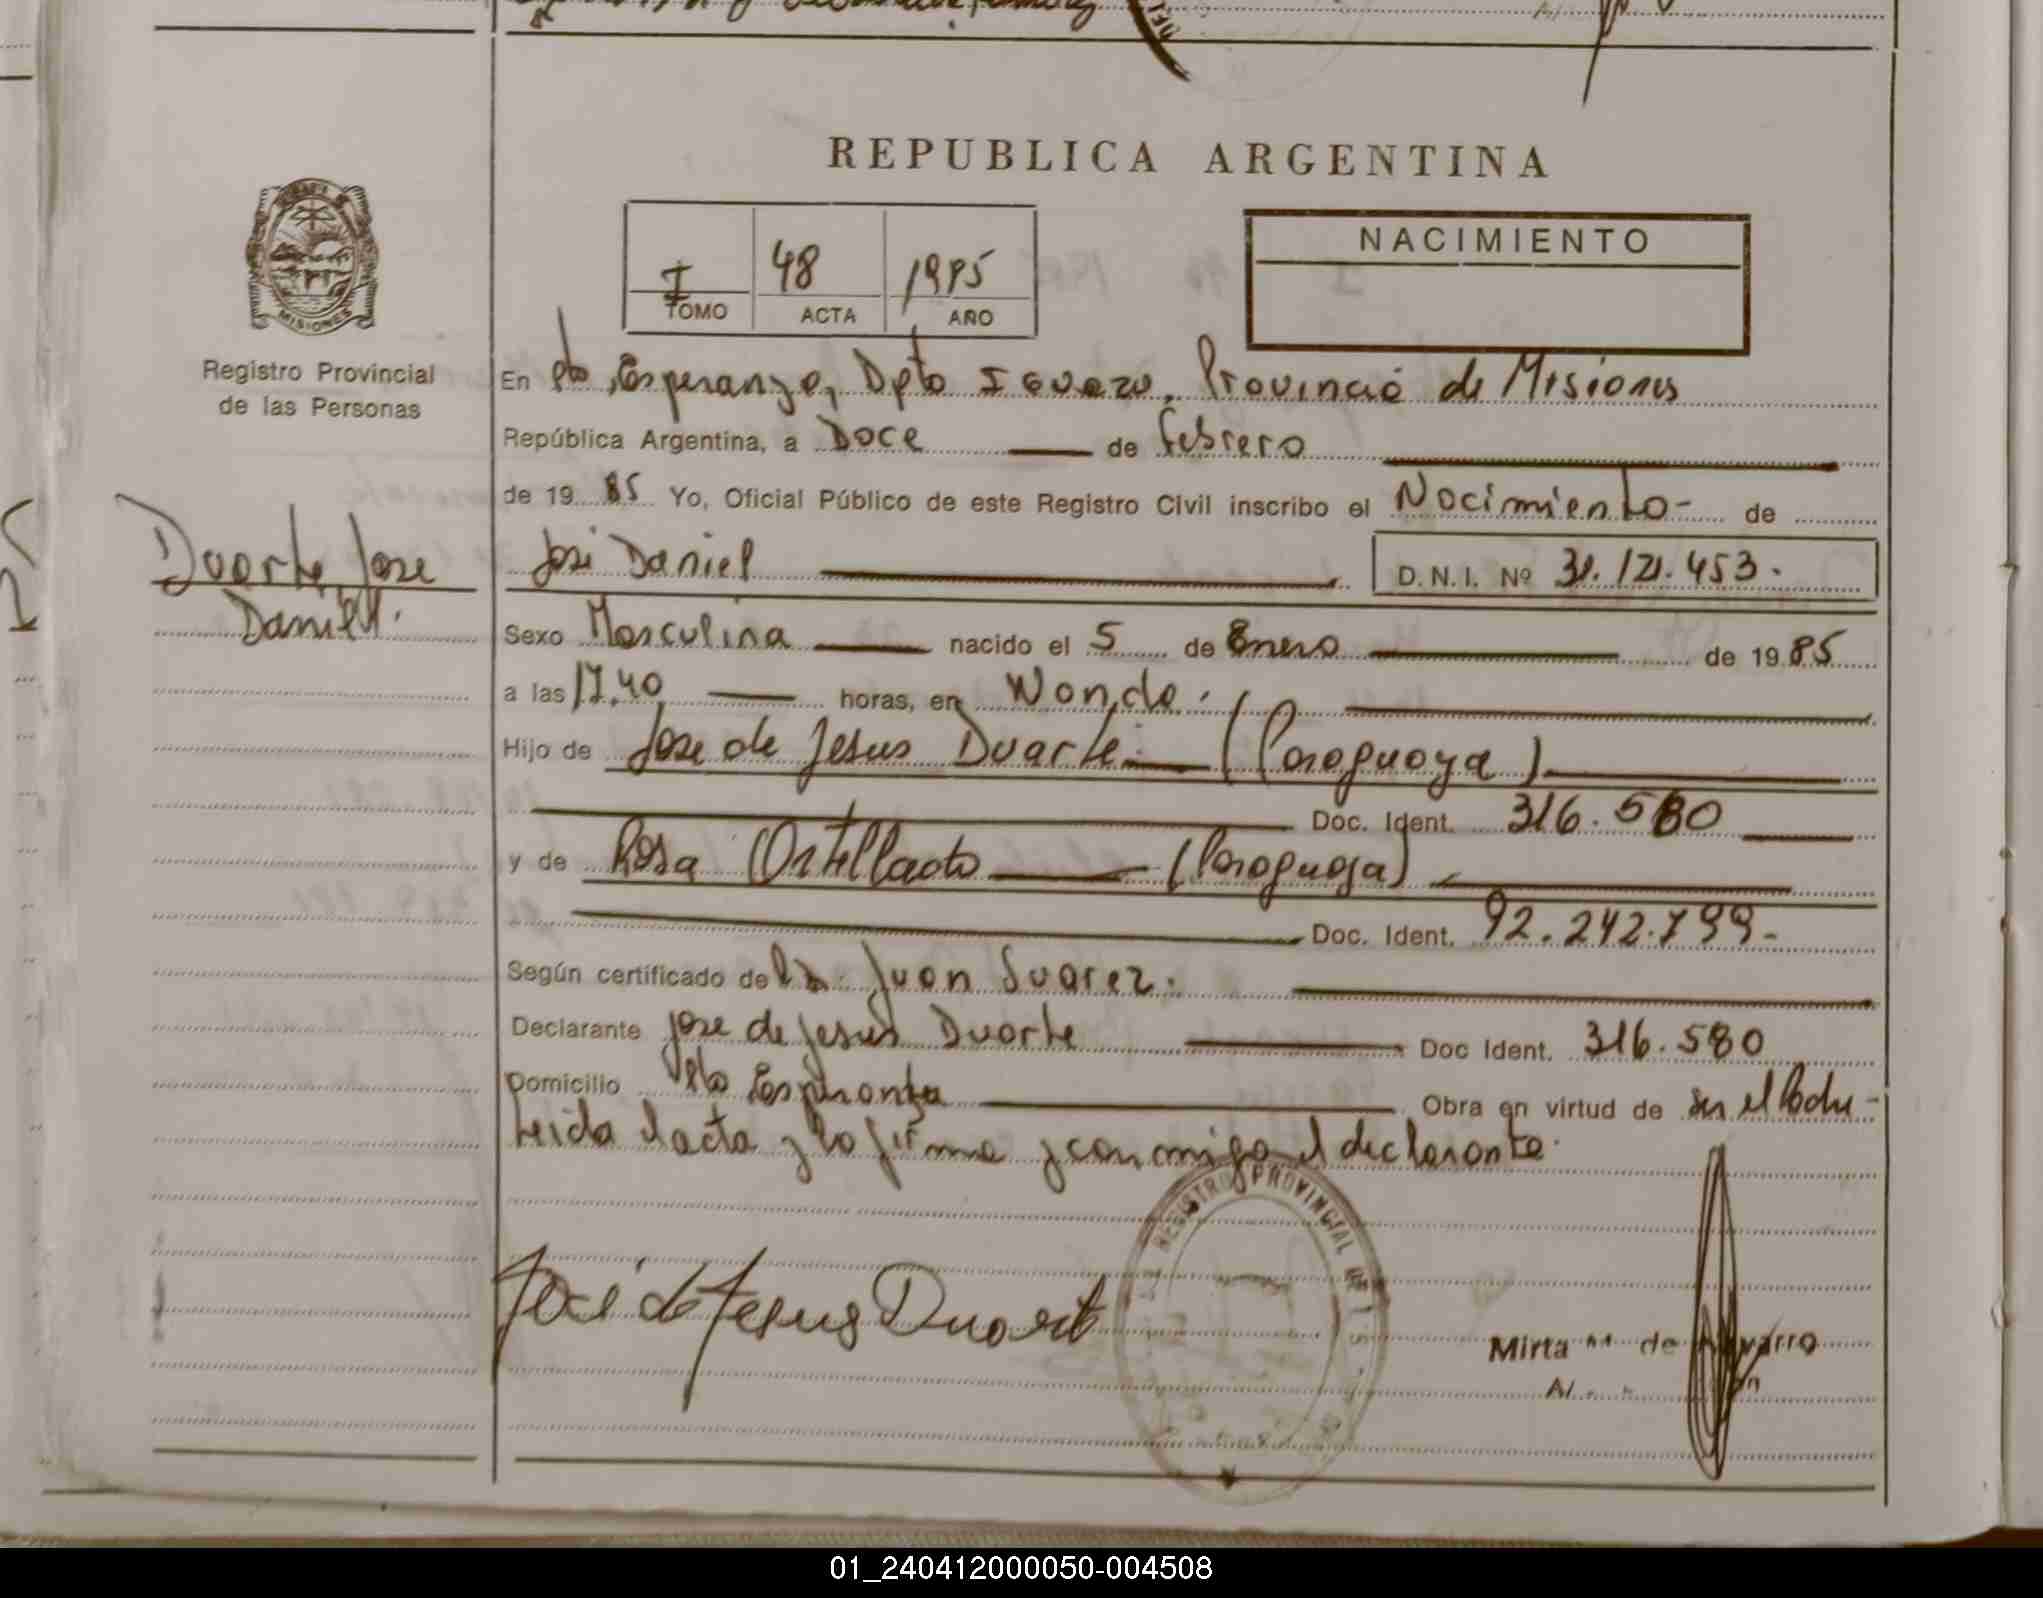 REPUBLICA ARGENTINA
I 48 1985
TOMO ACTA AÑO
NACIMIENTO
MISIONES
Registro Provincial
de las Personas
En Pto, Esperanza, Dpto Iguazu, Provincia de Misiones
República Argentina, a Doce de Febrero
de 19 85 Yo, Oficial Público de este Registro Civil inscribo el Nacimiento- de
Duarte Jose
Daniel.
José Daniel D.N.I. Nº 31.121.453.
Sexo Masculina nacido el 5 de Enero de 19 85
a las 17,40 horas, en Wanda.
Hijo de Jose de Jesus Duarte. (Paraguaya)
Doc. Ident. 316.580
y de Rosa Ortellado (Paraguaya)
Doc. Ident. 92.242.799.
Según certificado de Juan Suarez.
Declarante Jose de Jesus Duarte Doc Ident. 316.580
Domicilio Pto Esperanza Obra en virtud de ser el Padre-
Leida el acta y la firma conmigo el declarante.
REGISTRO PROVINCIAL DE
José de Jesus Duarte
Mirta de
01_240412000050-004508